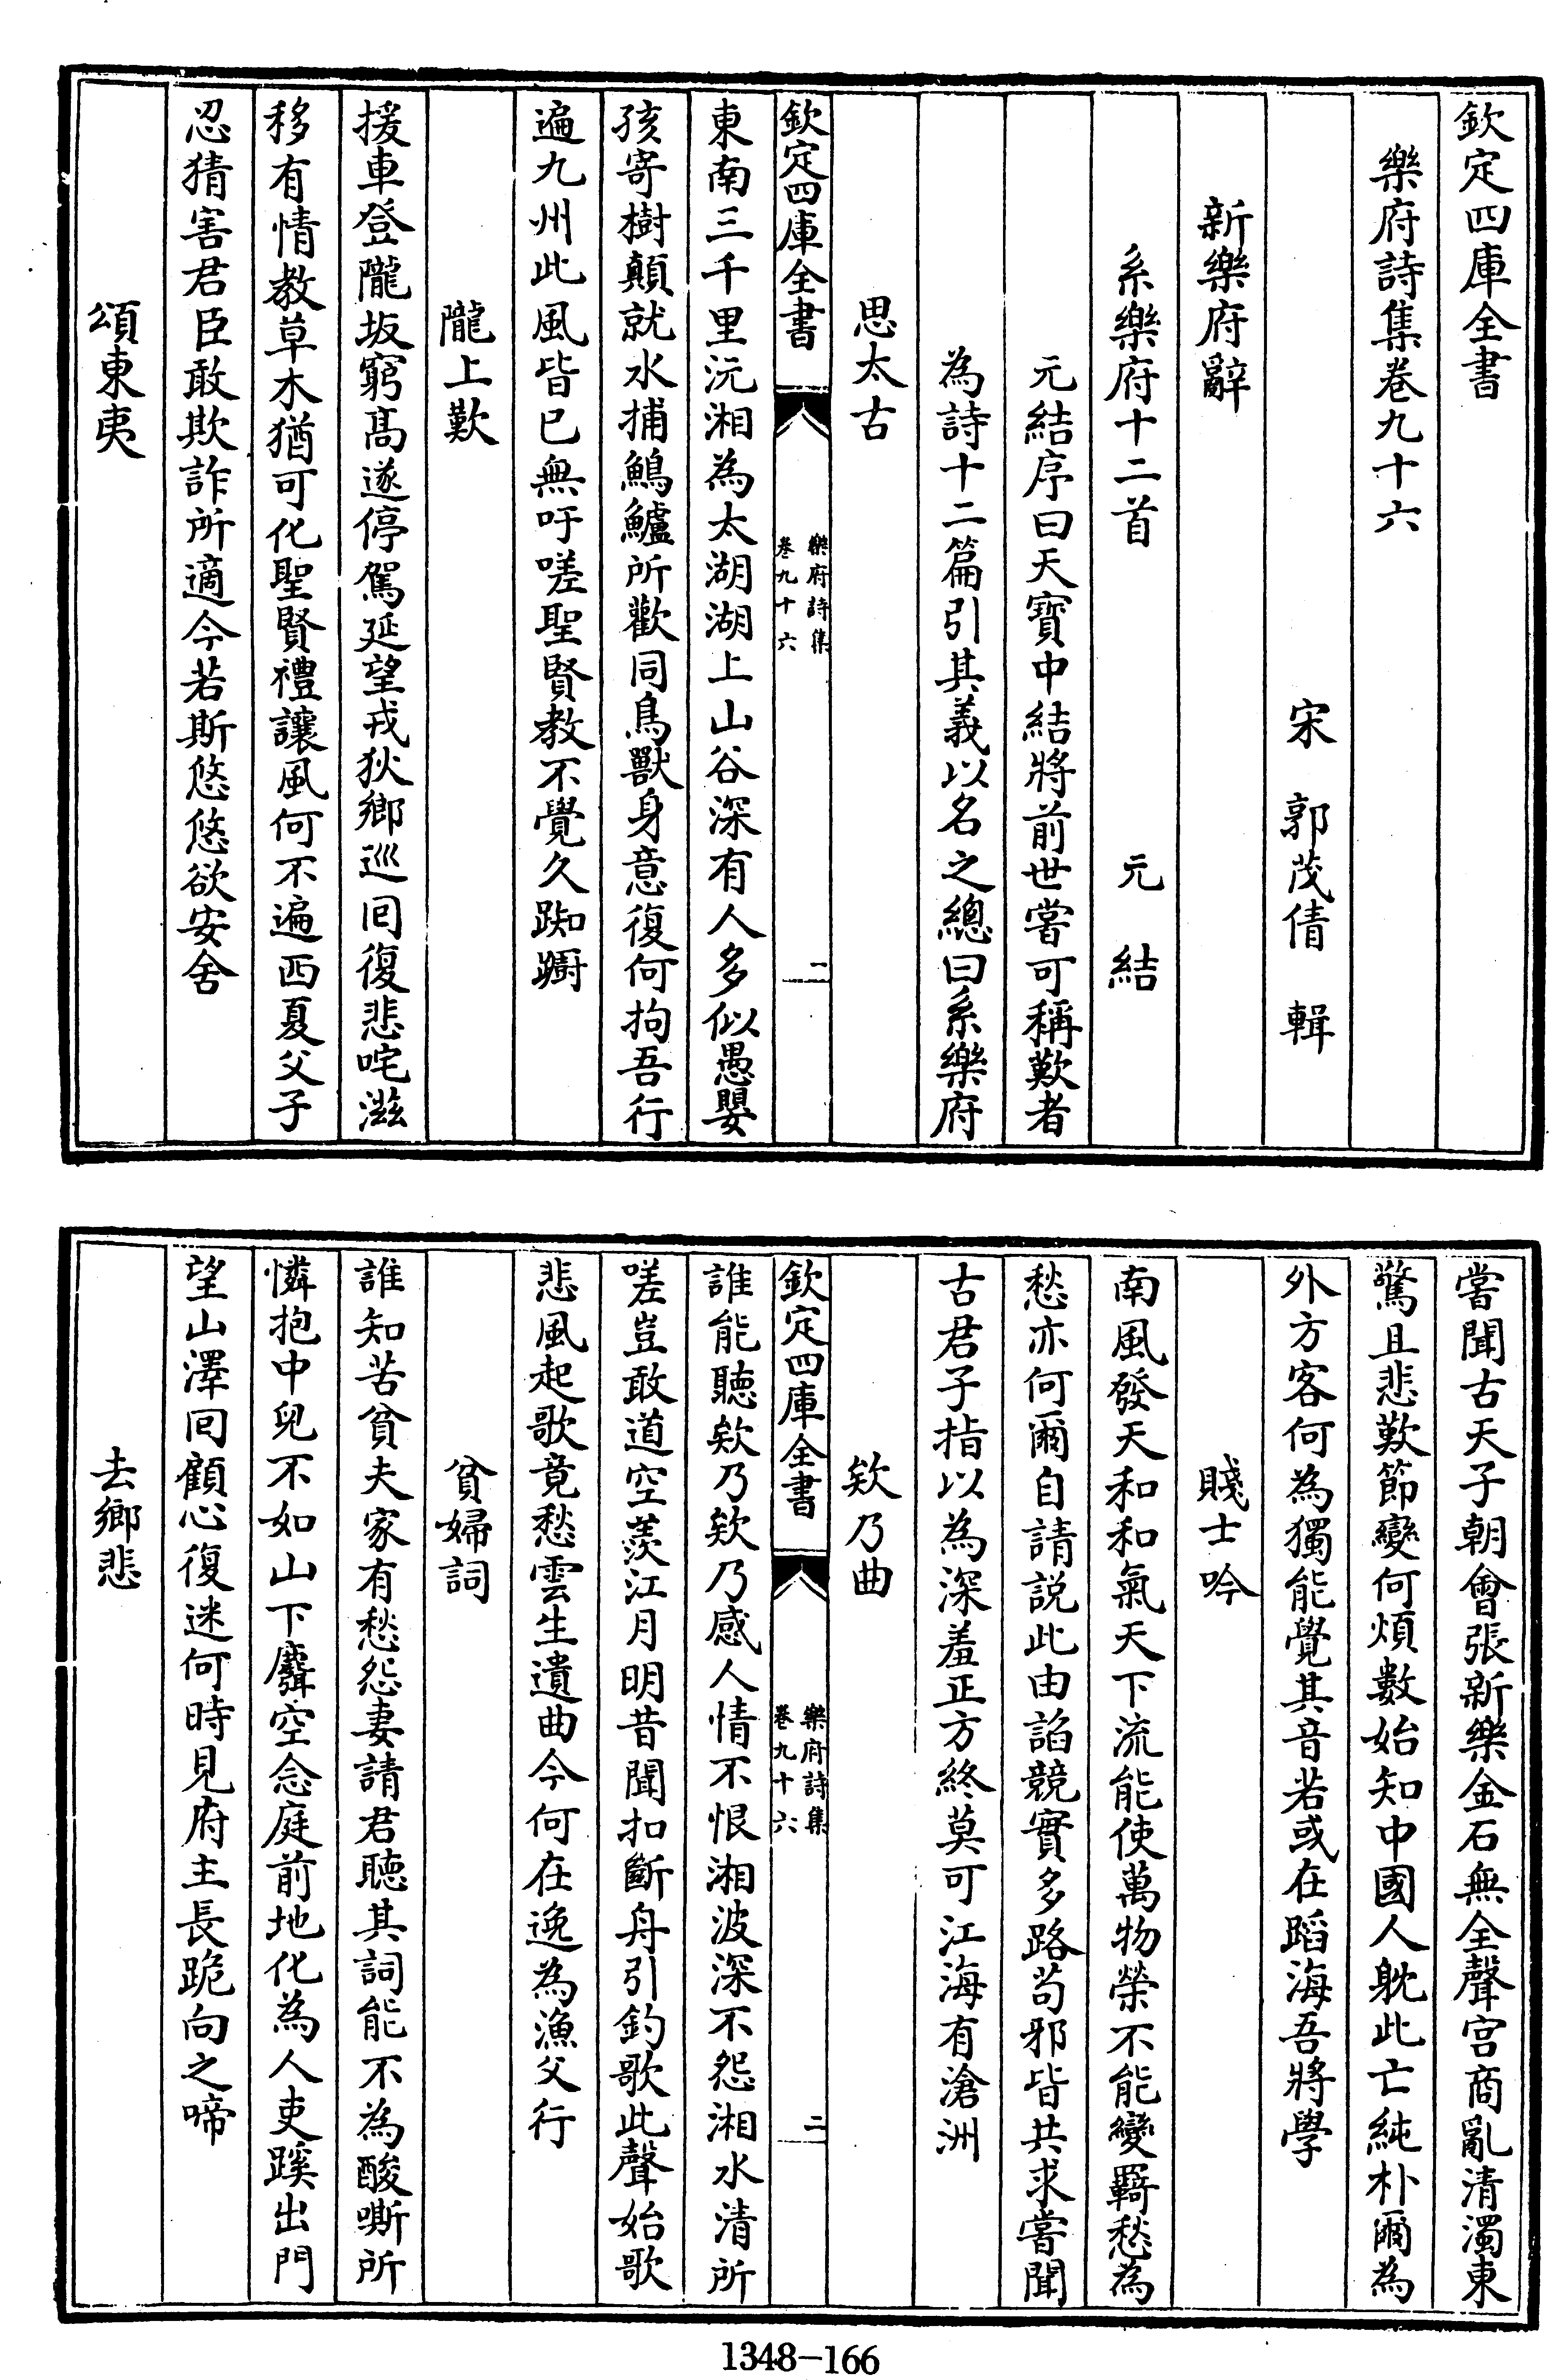 欽定四庫全書
樂府詩集卷九十六
宋 郭茂倩 輯
新樂府辭
系樂府十二首 元 結
元結序曰天寶中結將前世嘗可稱歎者
為詩十二篇引其義以名之總曰系樂府
思太古
欽定四庫全書 樂府詩集 卷九十六 一
東南三千里沅湘為太湖湖上山谷深有人多似愚嬰
孩寄樹顛就水捕鷠鱸所歡同鳥獸身意復何拘吾行
遍九州此風皆已無吁嗟聖賢教不覺久踟蹰
隴上歎
援車登隴坂窮髙遂停駕延望戎狄鄉巡回復悲咤滋
移有情教草木猶可化聖賢禮讓風何不遍西夏父子
忍猜害君臣敢欺詐所適今若斯悠悠欲安舍
頌東夷
嘗聞古天子朝會張新樂金石無全聲宫商亂清濁東
驚且悲歎節變何煩數始知中國人躭此亡純朴爾為
外方客何為獨能覺其音若或在蹈海吾將學
賤士吟
南風發天和和氣天下流能使萬物榮不能變羇愁為
愁亦何爾自請説此由諂競實多路茍邪皆共求嘗聞
古君子指以為深羞正方終莫可江海有滄洲
欸乃曲
欽定四庫全書 樂府詩集 卷九十六 二
誰能聽欸乃欸乃感人情不恨湘波深不怨湘水清所
嗟豈敢道空羨江月明昔聞扣斷舟引釣歌此聲始歌
悲風起歌竟愁雲生遺曲今何在逸為漁父行
貧婦詞
誰知苦貧夫家有愁怨妻請君聽其詞能不為酸嘶所
憐抱中兒不如山下麛空念庭前地化為人吏蹊出門
望山澤回顧心復迷何時見府主長跪向之啼
去鄉悲
1348-166